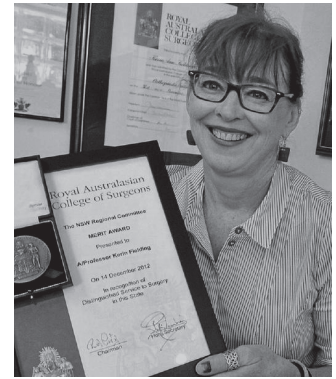 ROYAL
AUSTRALASIAN
COLLEGE
SURGEONS
Royal Australasian
College of Surgeons
The NSW Regional Committee
MERIT AWARD
Presented to
A/Professor Kerin Fielding
On 14 December 2012
In recognition of
Distinguished Service to Surgery
in this State
Chairman
Hon Secretary